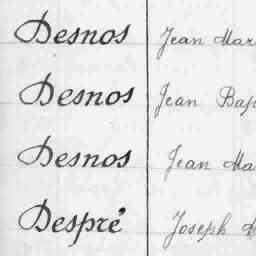 Desnos Jean Mar
Desnos Jean Bap
Desnos Jean Ma
Despré Joseph